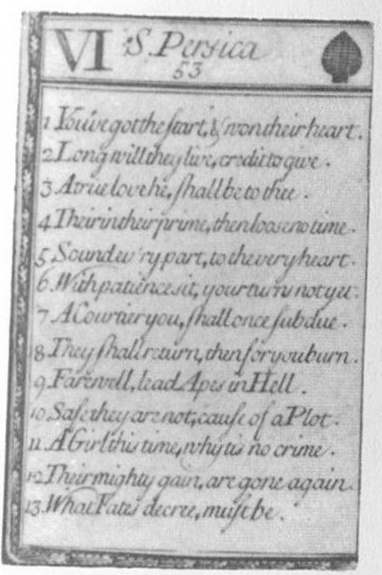 VI S. Persica
53
1 You've got the start, & won their heart.
2 Long will they live, credit to give.
3 A true love he, shall be to thee.
4 Their in their prime, then loose no time.
5 Sound ev'ry part, to the very heart.
6 With patience sit, your turns not yet.
7 A Courtier you, shall once subdue.
8 They shall return, then for you burn.
9 Farewell, lead Apes in Hell.
10 Safe they are not, cause of a Plot.
11 A Girl this time, why tis no crime.
12 Their mighty gain, are gone again.
13 What Fates decree, must be.